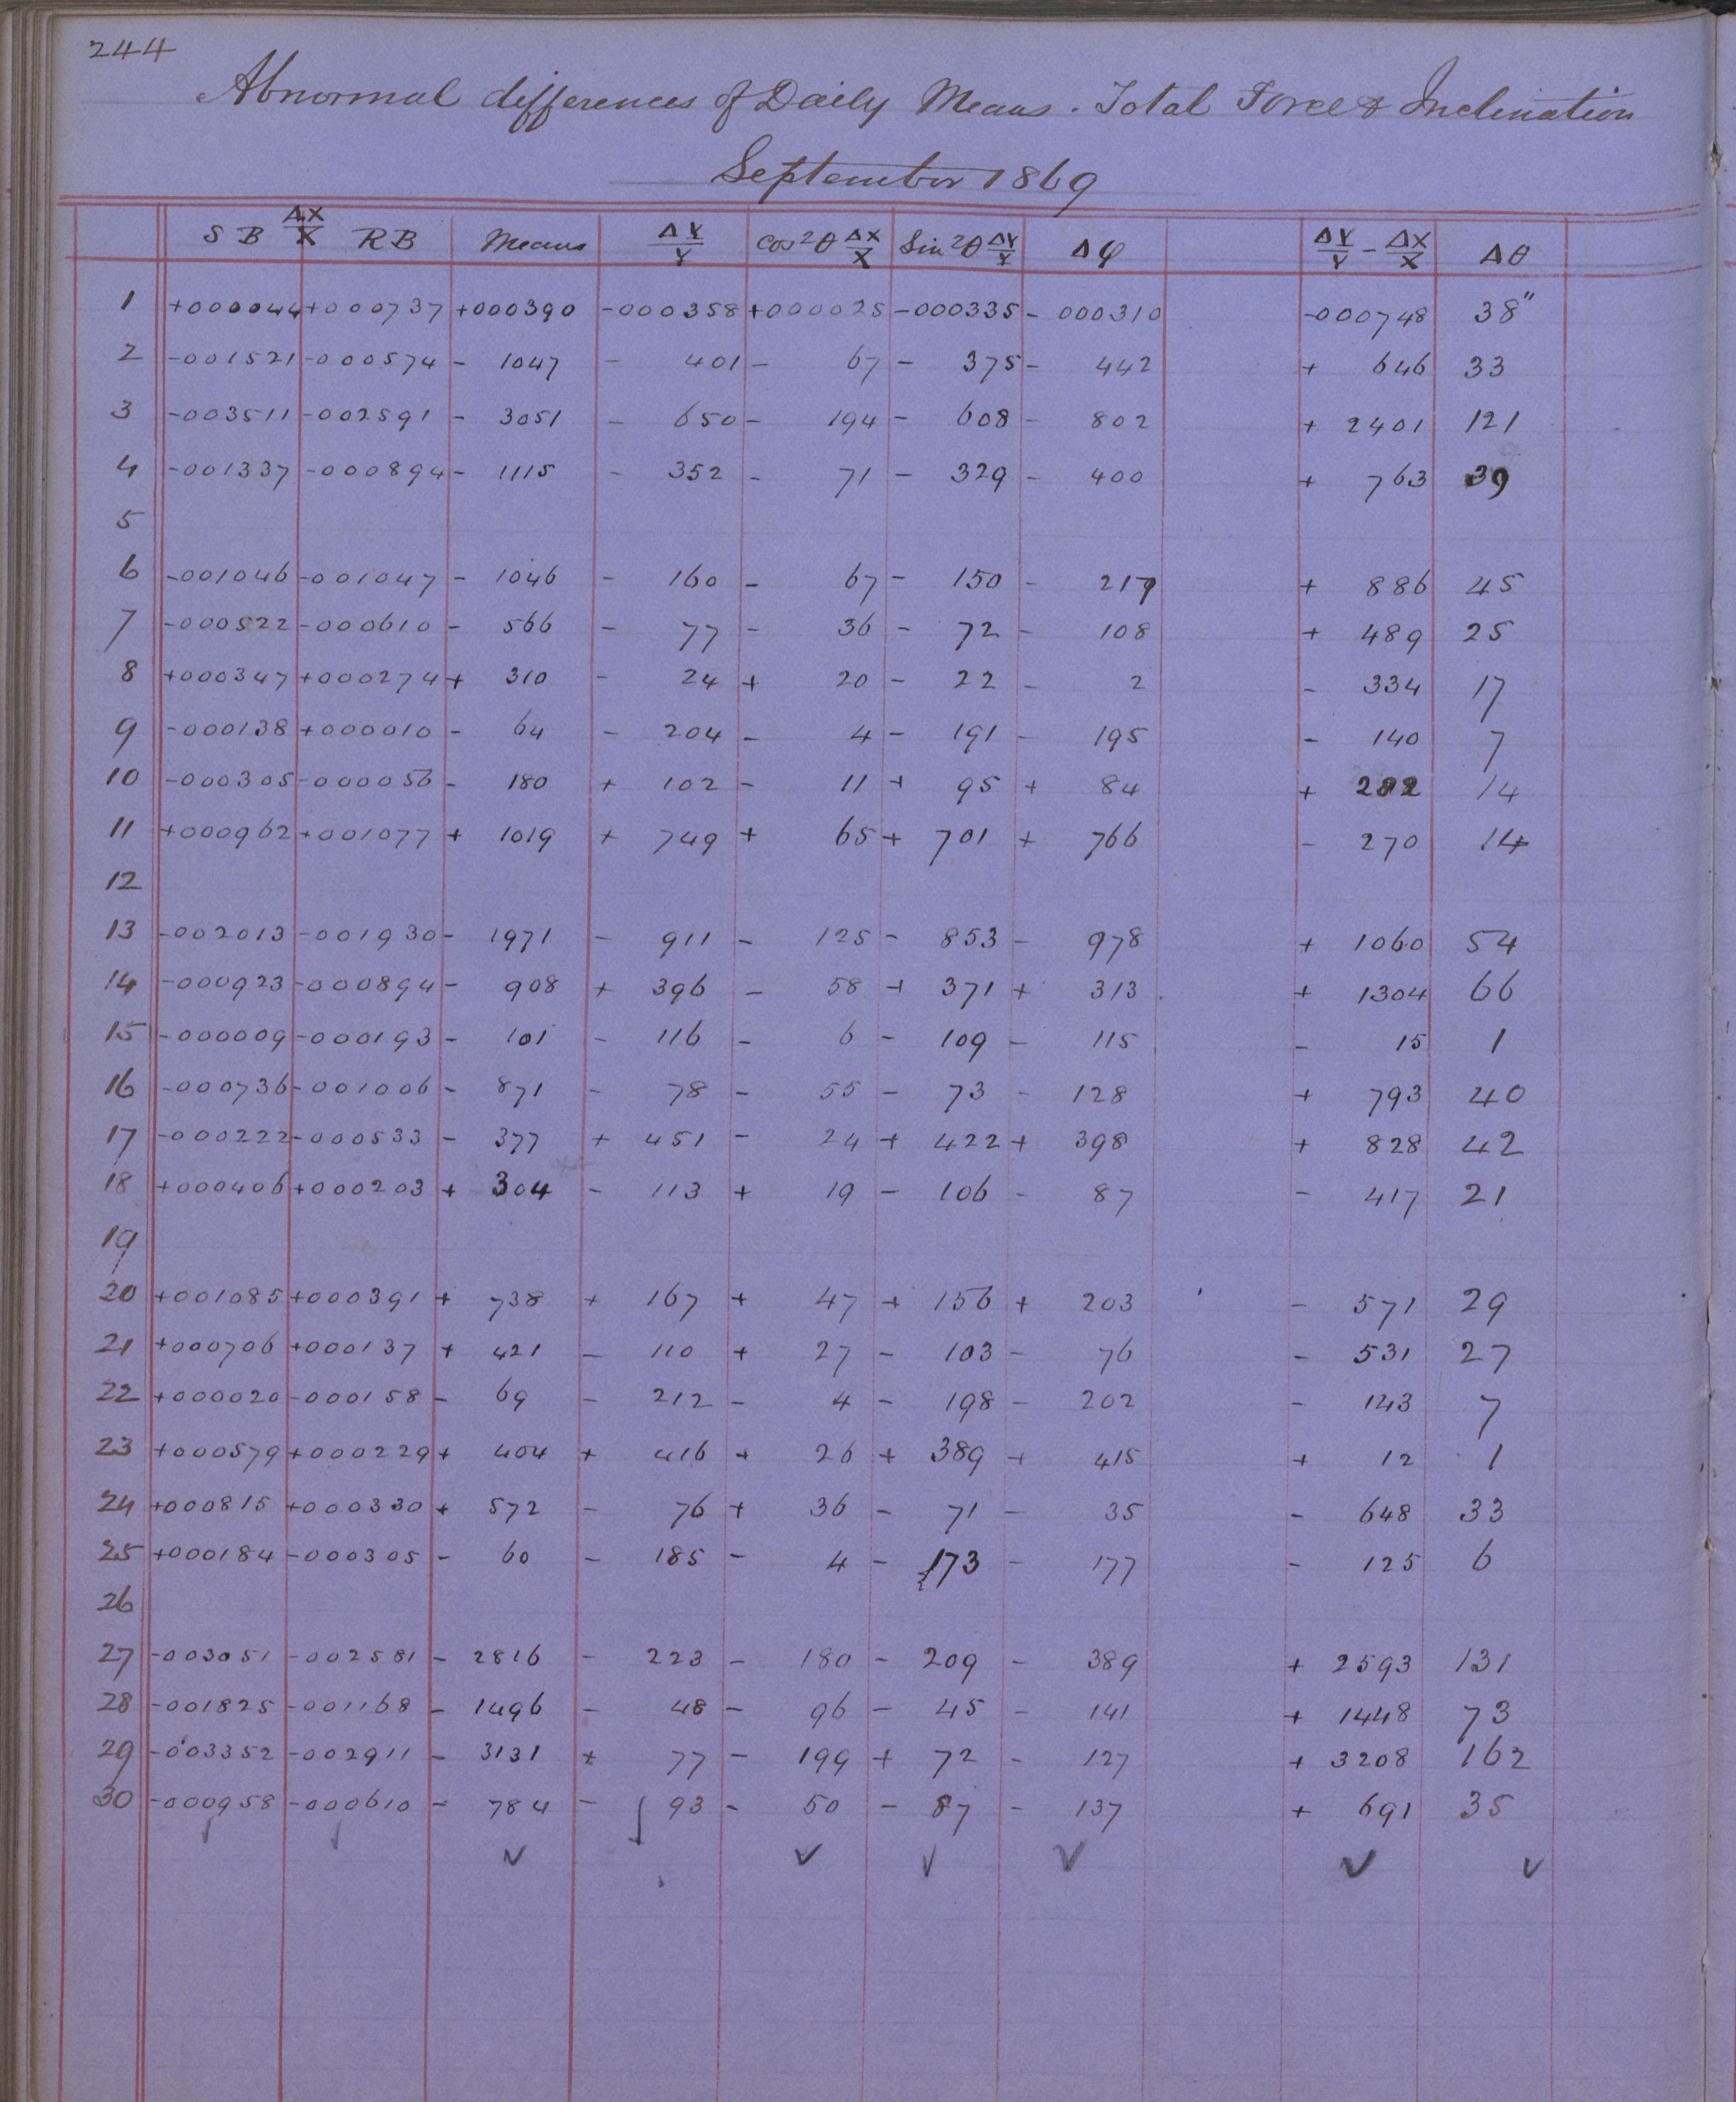 244
Abnormal differences of Daily Means. Total Force & Inclination
September 1869
SB ΔX/X RB Means ΔY/Y Cos²θ ΔX/X Sin²θ ΔY/Y Δφ ΔY/Y - ΔX/X Δθ
1 +000044 +000737 +000390 -000358 +000025 -000335 - 000310 -000748 38"
2 -001521 -000574 - 1047 - 401 - 67 - 375 - 442 + 646 33
3 -003511 -002591 - 3051 - 650 - 194 - 608 - 802 + 2401 121
4 -001337 -000894 - 1115 - 352 - 71 - 329 - 400 + 763 39
5
6 -001046 -001047 - 1046 - 160 - 67 - 150 - 217 + 886 45
7 -000522 -000610 - 566 - 77 - 36 - 72 - 108 + 489 25
8 +000347 +000274 + 310 - 24 + 20 - 22 - 2 - 334 17
9 -000138 +000010 - 64 - 204 - 4 - 191 - 195 - 140 7
10 -000305 -000056 - 180 + 102 - 11 + 95 + 84 + 282 14
11 +000962 +001077 + 1019 + 749 + 65 + 701 + 766 - 270 14
12
13 -002013 -001930 - 1971 - 911 - 125 - 853 - 978 + 1060 54
14 -000923 -000894 - 908 + 396 - 58 + 371 + 313 + 1304 66
15 -000009 -000193 - 101 - 116 - 6 - 109 - 115 - 15 1
16 -000736 -001006 - 871 - 78 - 55 - 73 - 128 + 793 40
17 -000222 -000533 - 377 + 451 - 24 + 422 + 398 + 828 42
18 +000406 +000203 + 304 - 113 + 19 - 106 - 87 - 417 21
19
20 +001085 +000391 + 738 + 167 + 47 + 156 + 203 - 571 29
21 +000706 +000137 + 421 - 110 + 27 - 103 - 76 - 531 27
22 +000020 -000158 - 69 - 212 - 4 - 198 - 202 - 143 7
23 +000579 +000229 + 404 + 416 + 26 + 389 + 415 + 12 1
24 +000815 +000330 + 572 - 76 + 36 - 71 - 35 - 648 33
25 +000184 -000305 - 60 - 185 - 4 - 173 - 177 - 125 6
26
27 -003051 -002581 - 2816 - 223 - 180 - 209 - 389 + 2593 131
28 -001825 -001168 - 1496 - 48 - 96 - 45 - 141 + 1448 73
29 -003352 -002911 - 3131 + 77 - 199 + 72 - 127 + 3208 162
30 -000958 -000610 - 784 - 93 - 50 - 87 - 137 + 691 35